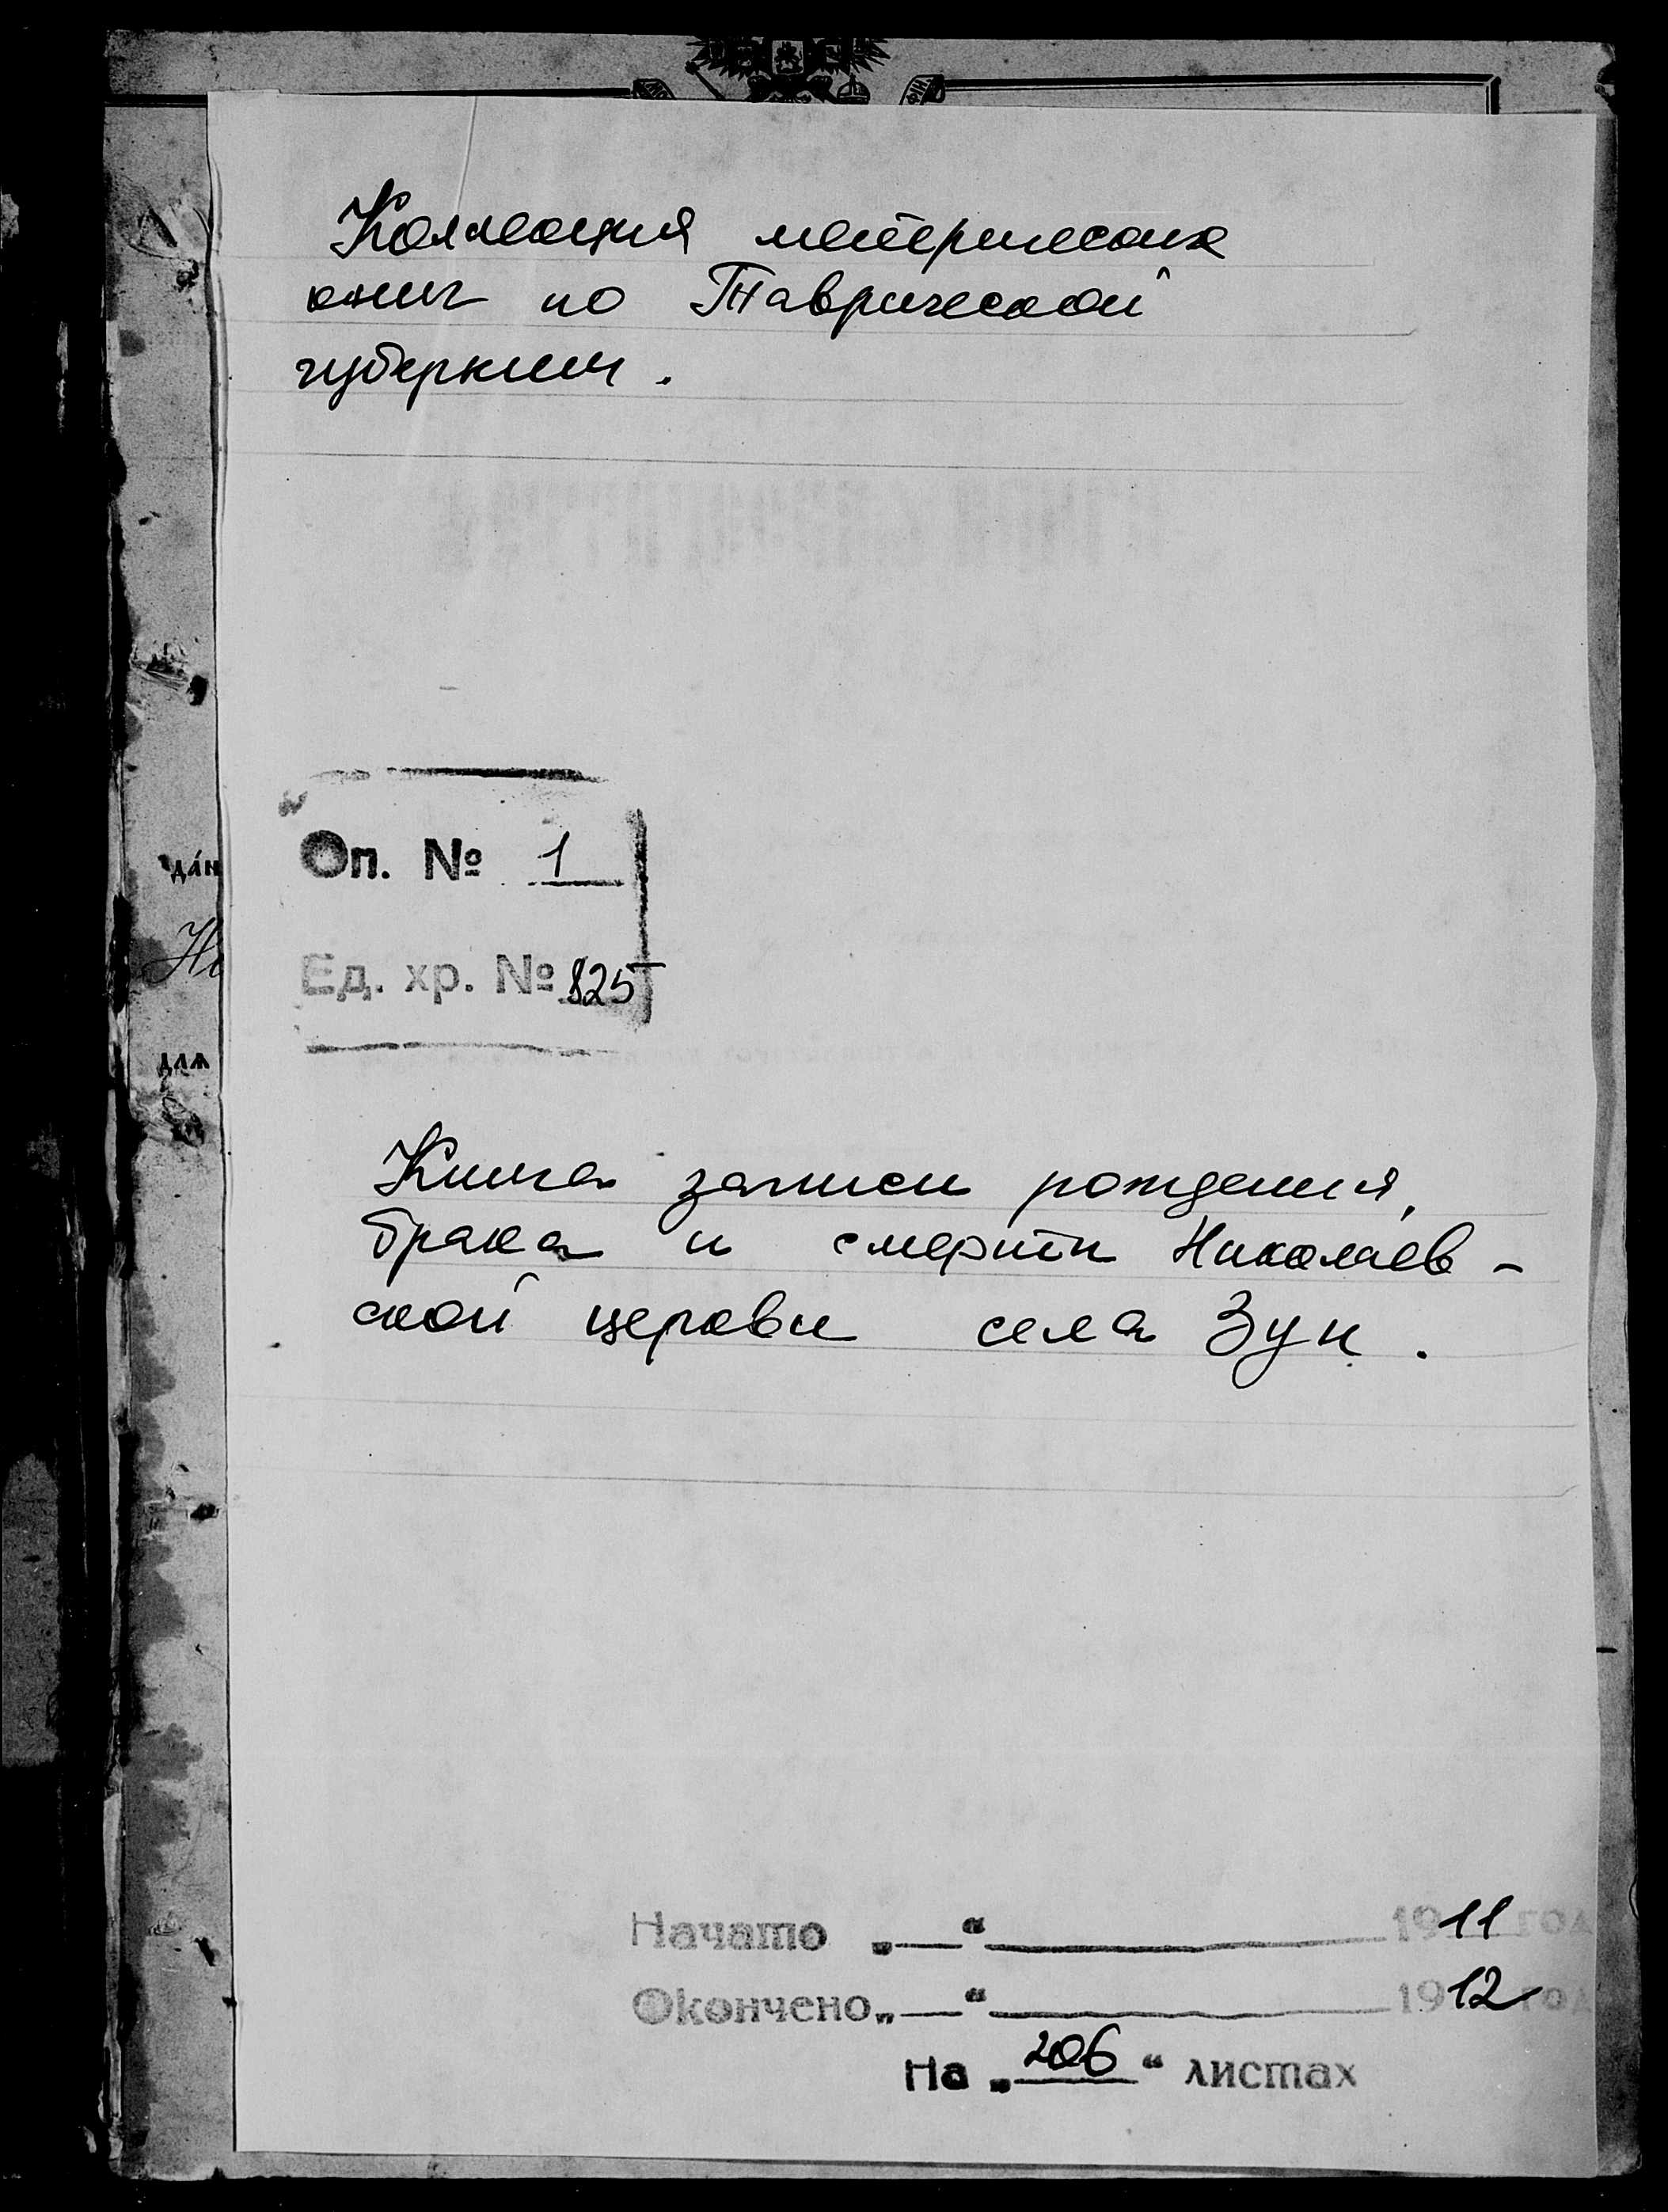 Коллекция метрических
книг по Таврической
губернии.
Оп. № 1
Ед. хр. № 825
дан
для
Книга записи рождения,
брака и смерти Николаев-
ской церкви села Зуи.
Начато „__“ 1911 год
Окончено „__“ 1912 год
На „206“ листах